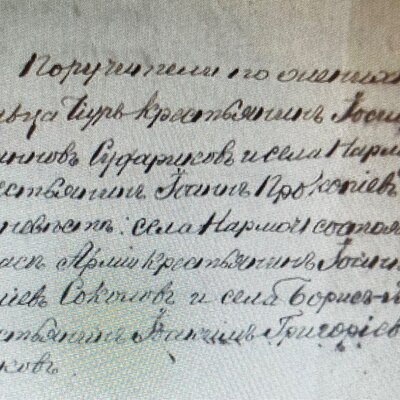 Поручители по женихѣ
Чурь крестьянинъ Іоси
инновъ Судариковъ и села Нарм
естьянинъ Іоаннъ Прокопіев
невѣстѣ: села Нармочи состоя
пасѣ Арміи крестьянинъ Іоанн
іевъ Соколовъ и села Борисъ-
стьянинъ Іоакимъ Григоріев
ковъ.